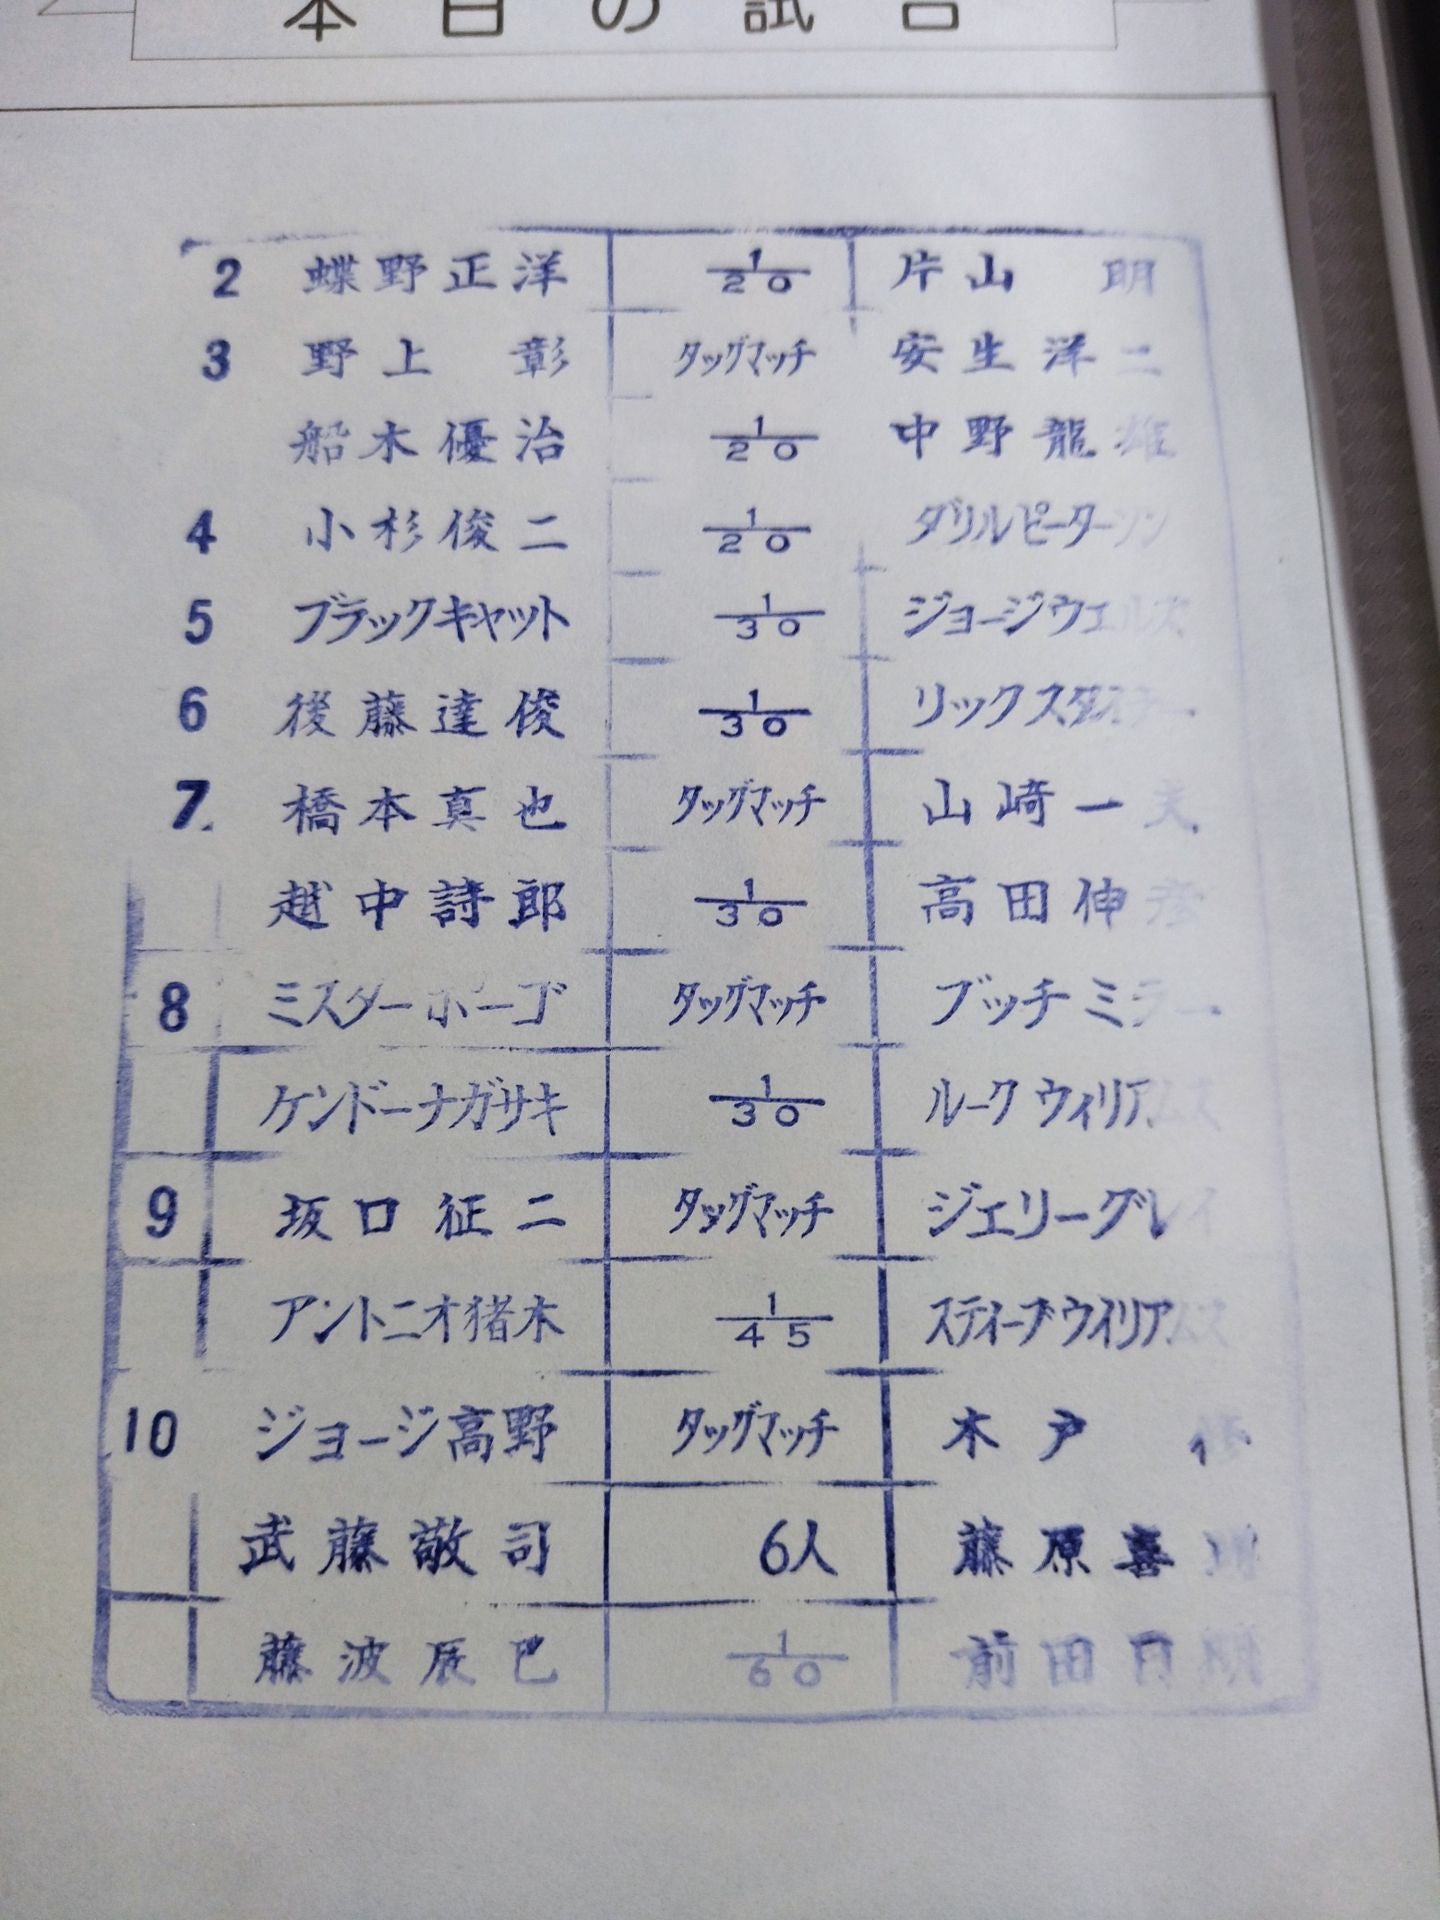 本日の試合
2 蝶野正洋 1/20 片山 明
3 野上 彰 タッグマッチ 安生洋二
船木優治 1/20 中野龍雄
4 小杉俊二 1/20 ダリルピーターソン
5 ブラックキャット 1/30 ジョージウエルス
6 後藤達俊 1/30 リックスタイナー
7 橋本真也 タッグマッチ 山崎一夫
越中詩郎 1/30 高田伸彦
8 ミスターポーゴ タッグマッチ ブッチミラー
ケンドーナガサキ 1/30 ルークウィリアムス
9 坂口征二 タッグマッチ ジェリーグレイ
アントニオ猪木 1/45 スティーブウイリアムス
10 ジョージ高野 タッグマッチ 木戸
武藤敬司 6人 藤原喜明
藤波辰巳 1/60 前田日明